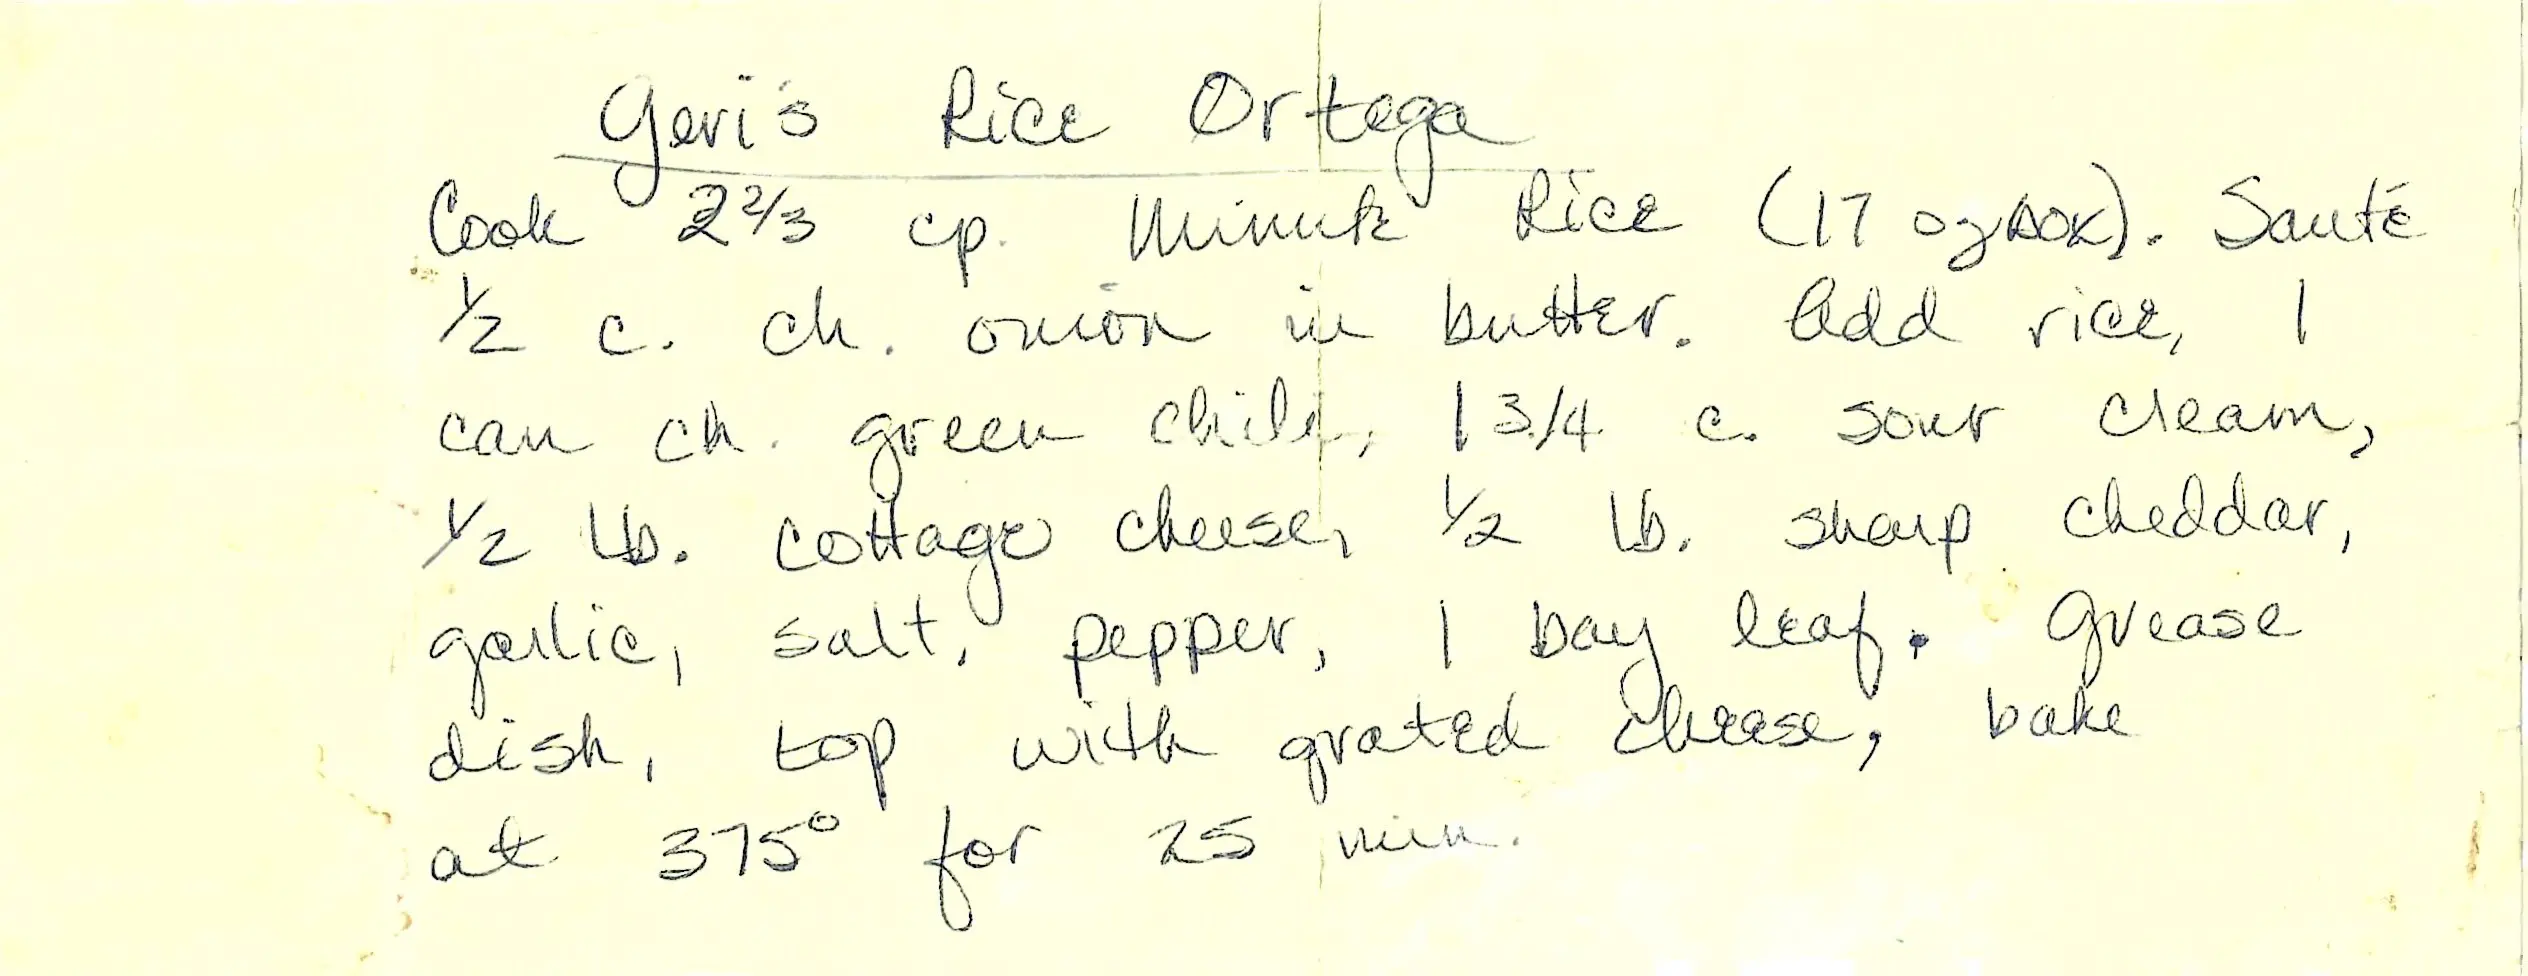 Geri's Rice Ortega
Cook 2 2/3 cp. Minute Rice (17 oz box). Sauté
1/2 c. ch. onion in butter. Add rice, 1
can ch. green chili, 1 3/4 c. sour cream,
1/2 lb. cottage cheese, 1/2 lb. sharp cheddar,
garlic, salt, pepper, 1 bay leaf. Grease
dish, top with grated cheese, bake
at 375° for 25 min.